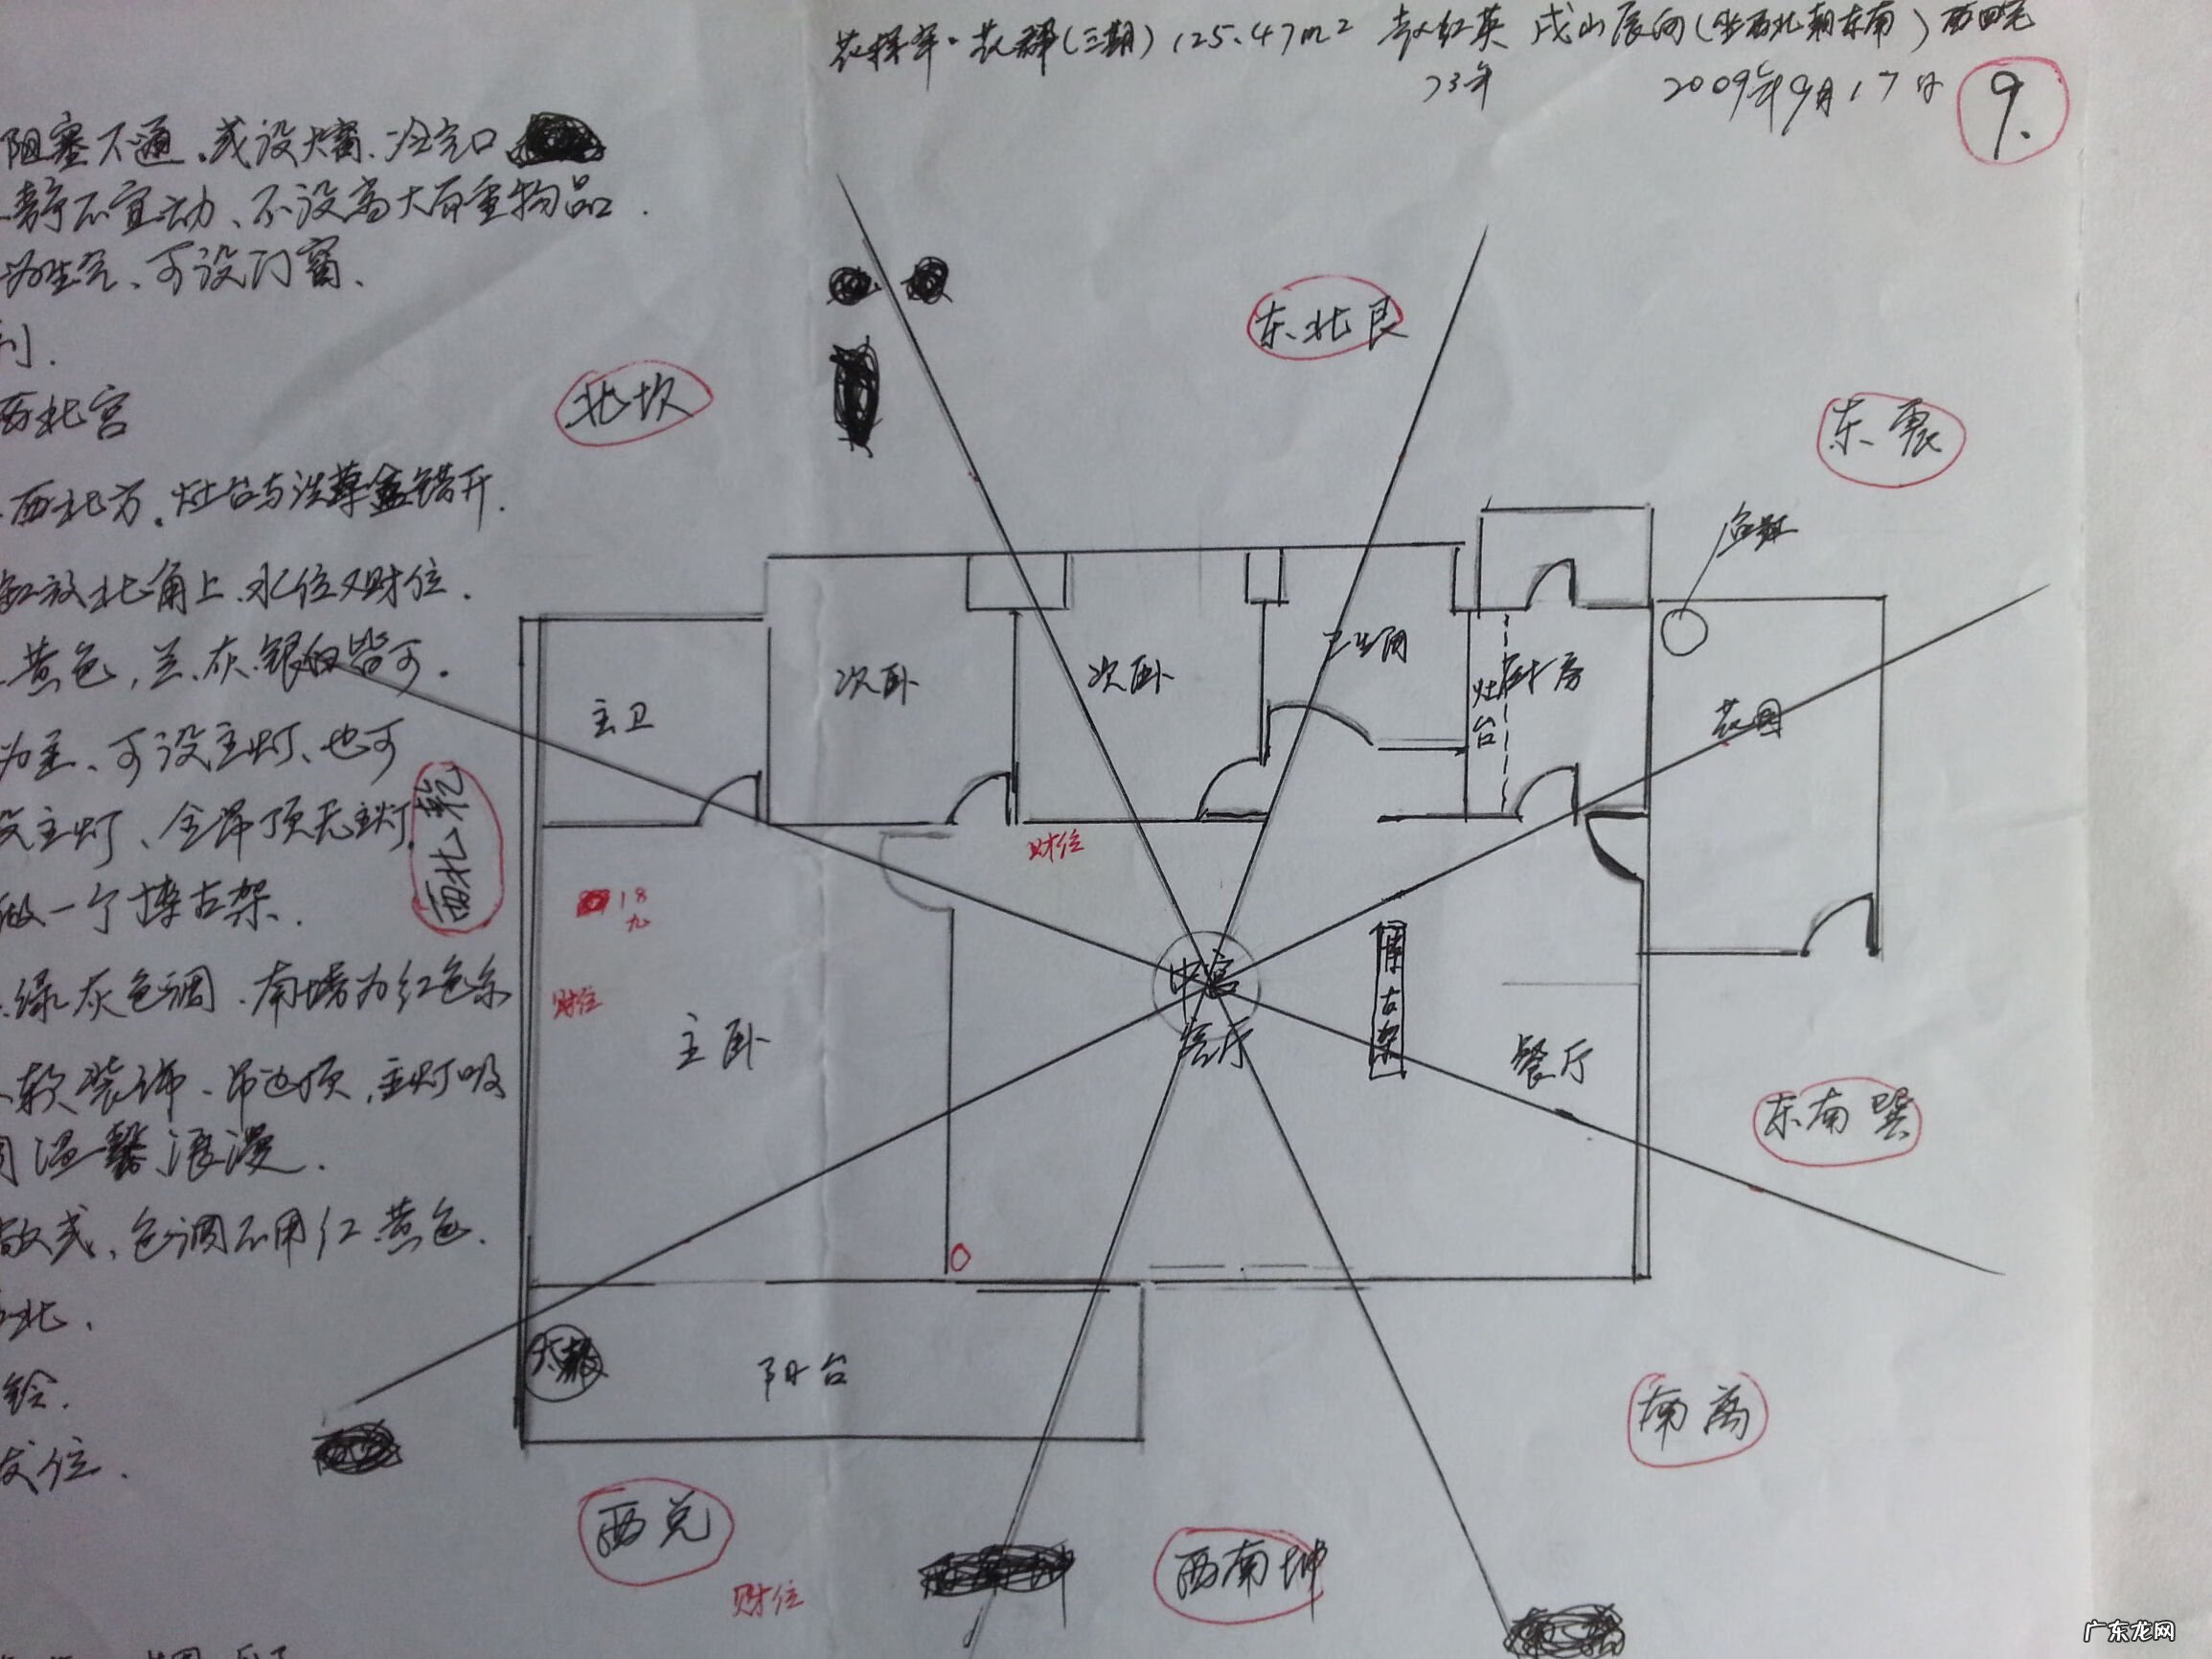 125.47m² 戌山辰向(坐西北朝东南)西四宅
2009年9月17日
9.
阻塞不通.或设大窗.冷气口
静不宜动、不设高大而重物品.
为生气、可设门窗.
西北宫
西北方.灶台与洗菜盆错开.
放北角上.水位又财位.
黄色,兰.灰.银白皆可.
为主、可设主灯、也可
设主灯、全吊顶无主灯.
做一个博古架.
绿灰色调.南墙为红色系
软装饰.吊边顶,主灯吸
温馨浪漫.
敞式、色调不用红.黄色.
北.
铃.
位.
北坎
东北艮
东震
鱼缸
西北乾
主卫
次卧
次卧
卫生间
灶台
厨房
花园
财位
18
九
财位
主卧
中宫
客厅
博古架
餐厅
东南巽
阳台
南离
西兑
西南坤
财位
广东龙网